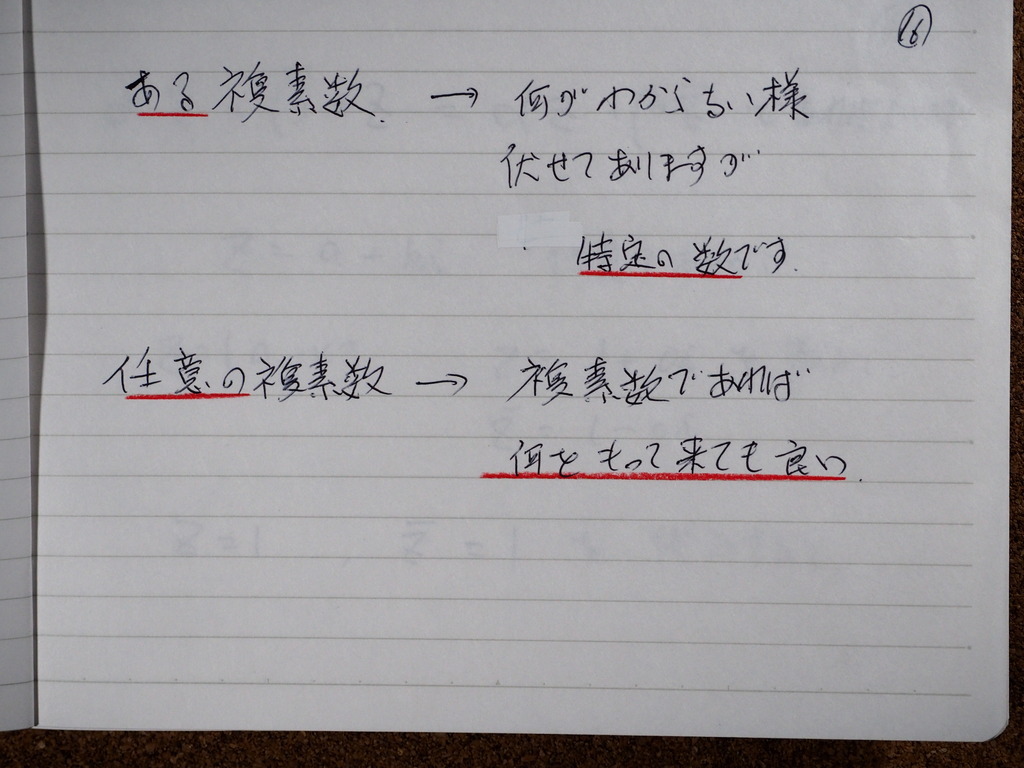 ⑯
ある複素数. → 何かわからない様
伏せてありますが
特定の数です.
任意の複素数 → 複素数であれば
何をもって来ても良い.